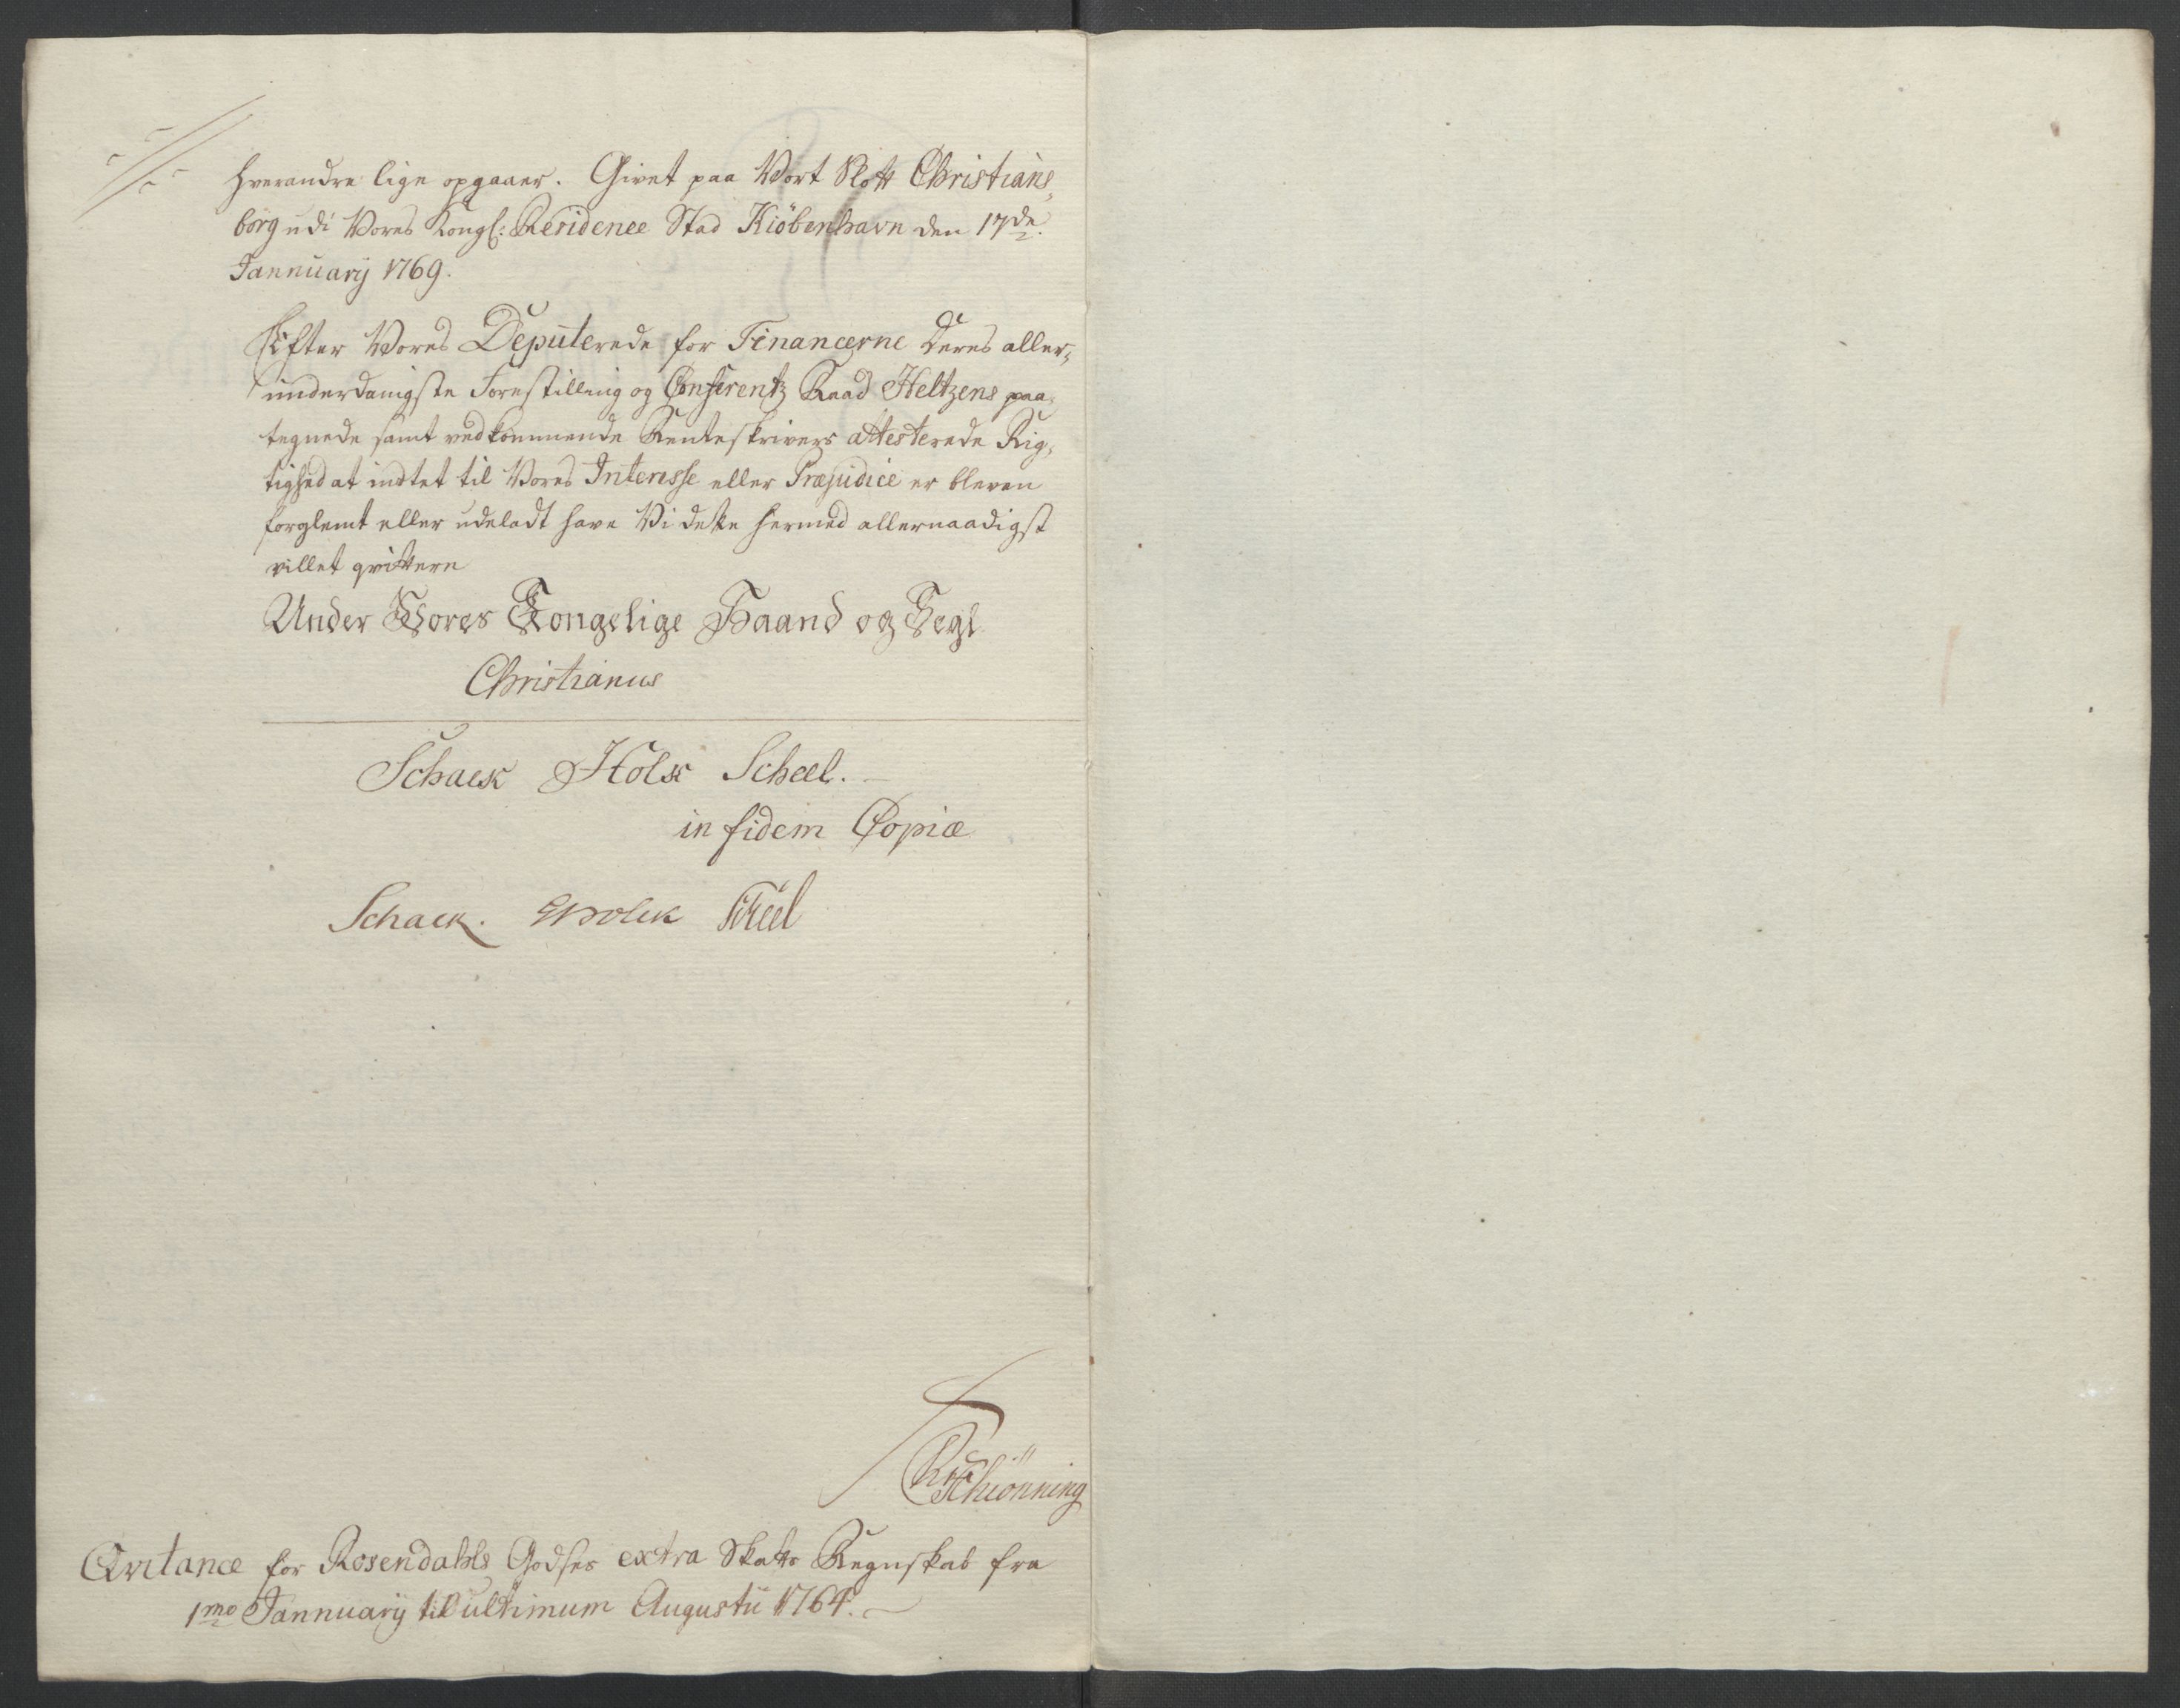 hverandre lige opgaaer. Givet paa Vort Slott Christians-
borg udi Vores Kongl: Residence Stad Kiöbenhavn den 17de
Jannuarij 1769.
Efter Vores Deputerede for Financerne deres aller-
underdanigste Forestilling og Conferentz Raad Heltzens paa-
tegnede samt vedkommende Renteskrivers attesterede Rig-
tighed at indtet til Vores Interesse eller Præjudice er bleven
forglemt eller udeladt have Vi dette hermed allernaadigst
villet qvittere
Under Vores Kongelige Haand og Segl
Christianus
Schack Holck Scheel.
in fidem Copiæ
Schack. Holck Scheel
Schiönning
Qvitance for Rosendahls Godses extra Skatts Regnskab fra
1mo Jannuarij til ultimum Augustii 1764.